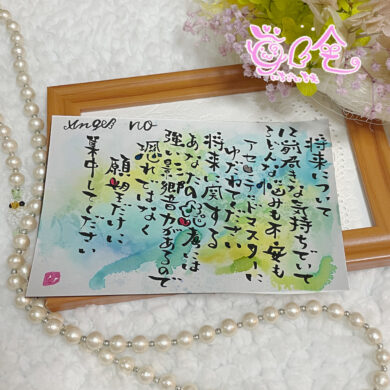 Angel no
将来について
は前向きな気持ちでいて
どんな悩みも不安も
アセンデッドマスターに
ゆだねてください
将来に関する
あなたの思には
強い影響力があるので
恐れではなく
願望だけに
集中してください